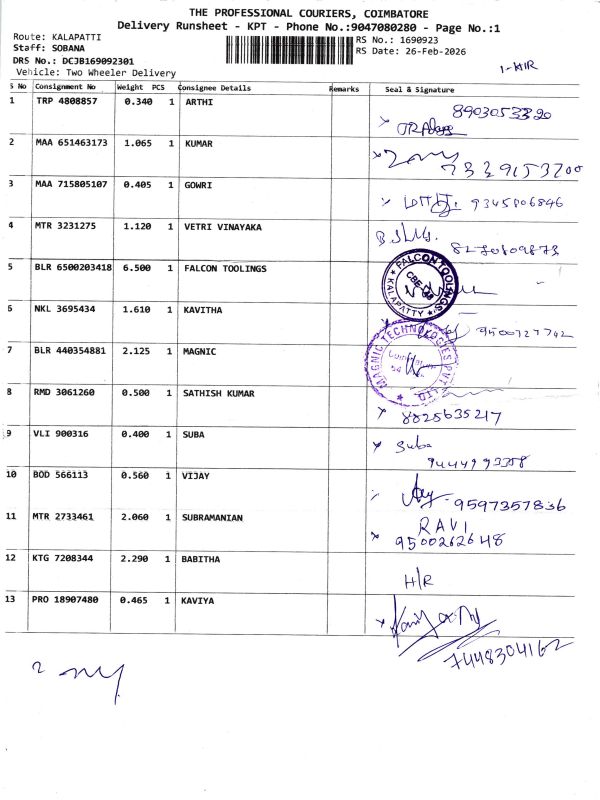 THE PROFESSIONAL COURIERS, COIMBATORE
Delivery Runsheet - KPT - Phone No.:9047080280 - Page No.:1
Route: KALAPATTI
RS No.: 1690923
Staff: SOBANA
RS Date: 26-Feb-2026
DRS No.: DCJB169092301
Vehicle: Two Wheeler Delivery
1-H/R
S No Consignment No Weight PCS Consignee Details Remarks Seal & Signature
1 TRP 4808857 0.340 1 ARTHI
2 MAA 651463173 1.065 1 KUMAR
7339153200
3 MAA 715805107 0.405 1 GOWRI
9345806846
4 MTR 3231275 1.120 1 VETRI VINAYAKA
5 BLR 6500203418 6.500 1 FALCON TOOLINGS
FALCON TOOLINGS
KALAPATTY
6 NKL 3695434 1.610 1 KAVITHA
9500727742
7 BLR 440354881 2.125 1 MAGNIC
MAGNIC TECHNOLOGIES PVT LTD
8 RMD 3061260 0.500 1 SATHISH KUMAR
8825635217
9 VLI 900316 0.400 1 SUBA
Suba
9444993358
10 BOD 566113 0.560 1 VIJAY
9597357836
11 MTR 2733461 2.060 1 SUBRAMANIAN
RAVI
9500262648
12 KTG 7208344 2.290 1 BABITHA
H/R
13 PRO 18907480 0.465 1 KAVIYA
7448304162